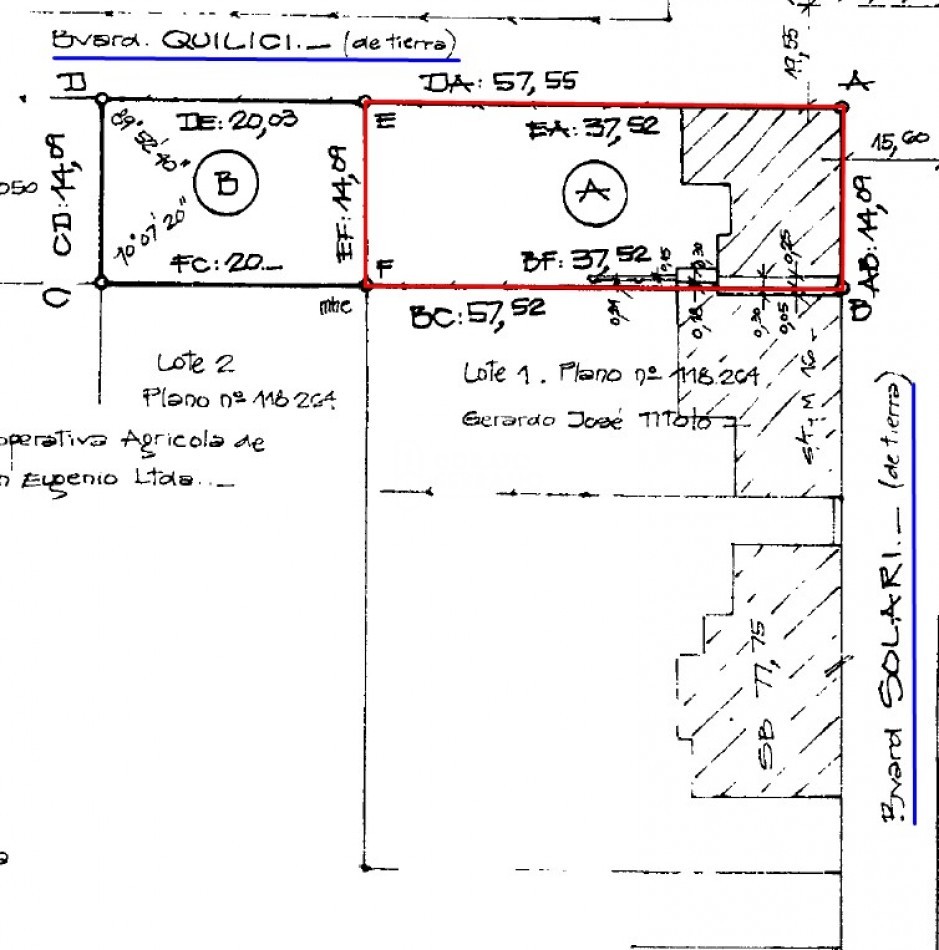 Bvard. QUILICI.— (de tierra)
19,55
D
DA: 57,55
A
DE: 20,03
E
EA: 37,52
15,60
89° 52' 40"
050
CD: 14,09
B
EF: 14,09
A
AB: 14,09
10° 07' 20"
FC: 20...
F
BF: 37,52
0,15
0,30
0,25
C
mhc
BC: 57,52
0,18
0,30
0,05
B
Lote 2
Plano nº 118.264
Lote 1. Plano nº 118.264
Gerardo José
operativa Agricola de
n Eugenio Ltda..—
Bvard SOLARI.— (de tierra)
SB 77,75